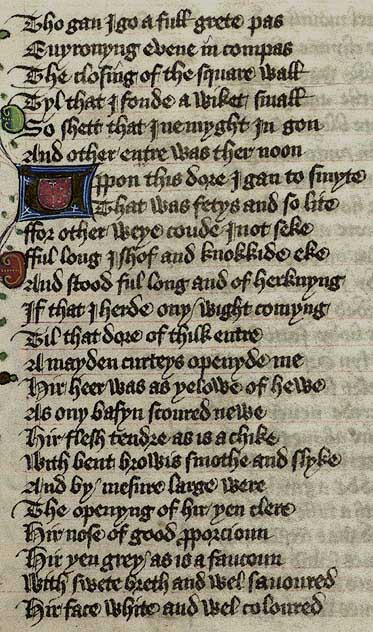 Tho gan I go a full grete pas
Euyronyng evene in compas
The closing of the square wall
Tyl that I fonde a wiket small
So shett that I ne myght in gon
And other entre was ther noon
Uppon this dore I gan to smyte
That was fetys and so lite
ffor other weye coude I not seke
fful long I shof and knokkide eke
And stood ful long and of herknyng
If that I herde ony wight comyng
Til that dore of thilk entre
A mayden curteys openyde me
Hir heer was as yelowe of hewe
As ony basyn scoured newe
Hir flesh tendre as is a chike
With bent browis smothe and slyke
And by mesure large were
The openyng of hir yen clere
Hir nose of good ꝓporcioun
Hir yen grey as is a faucoun
With swete breth and wel sauoured
Hir face white and wel coloured